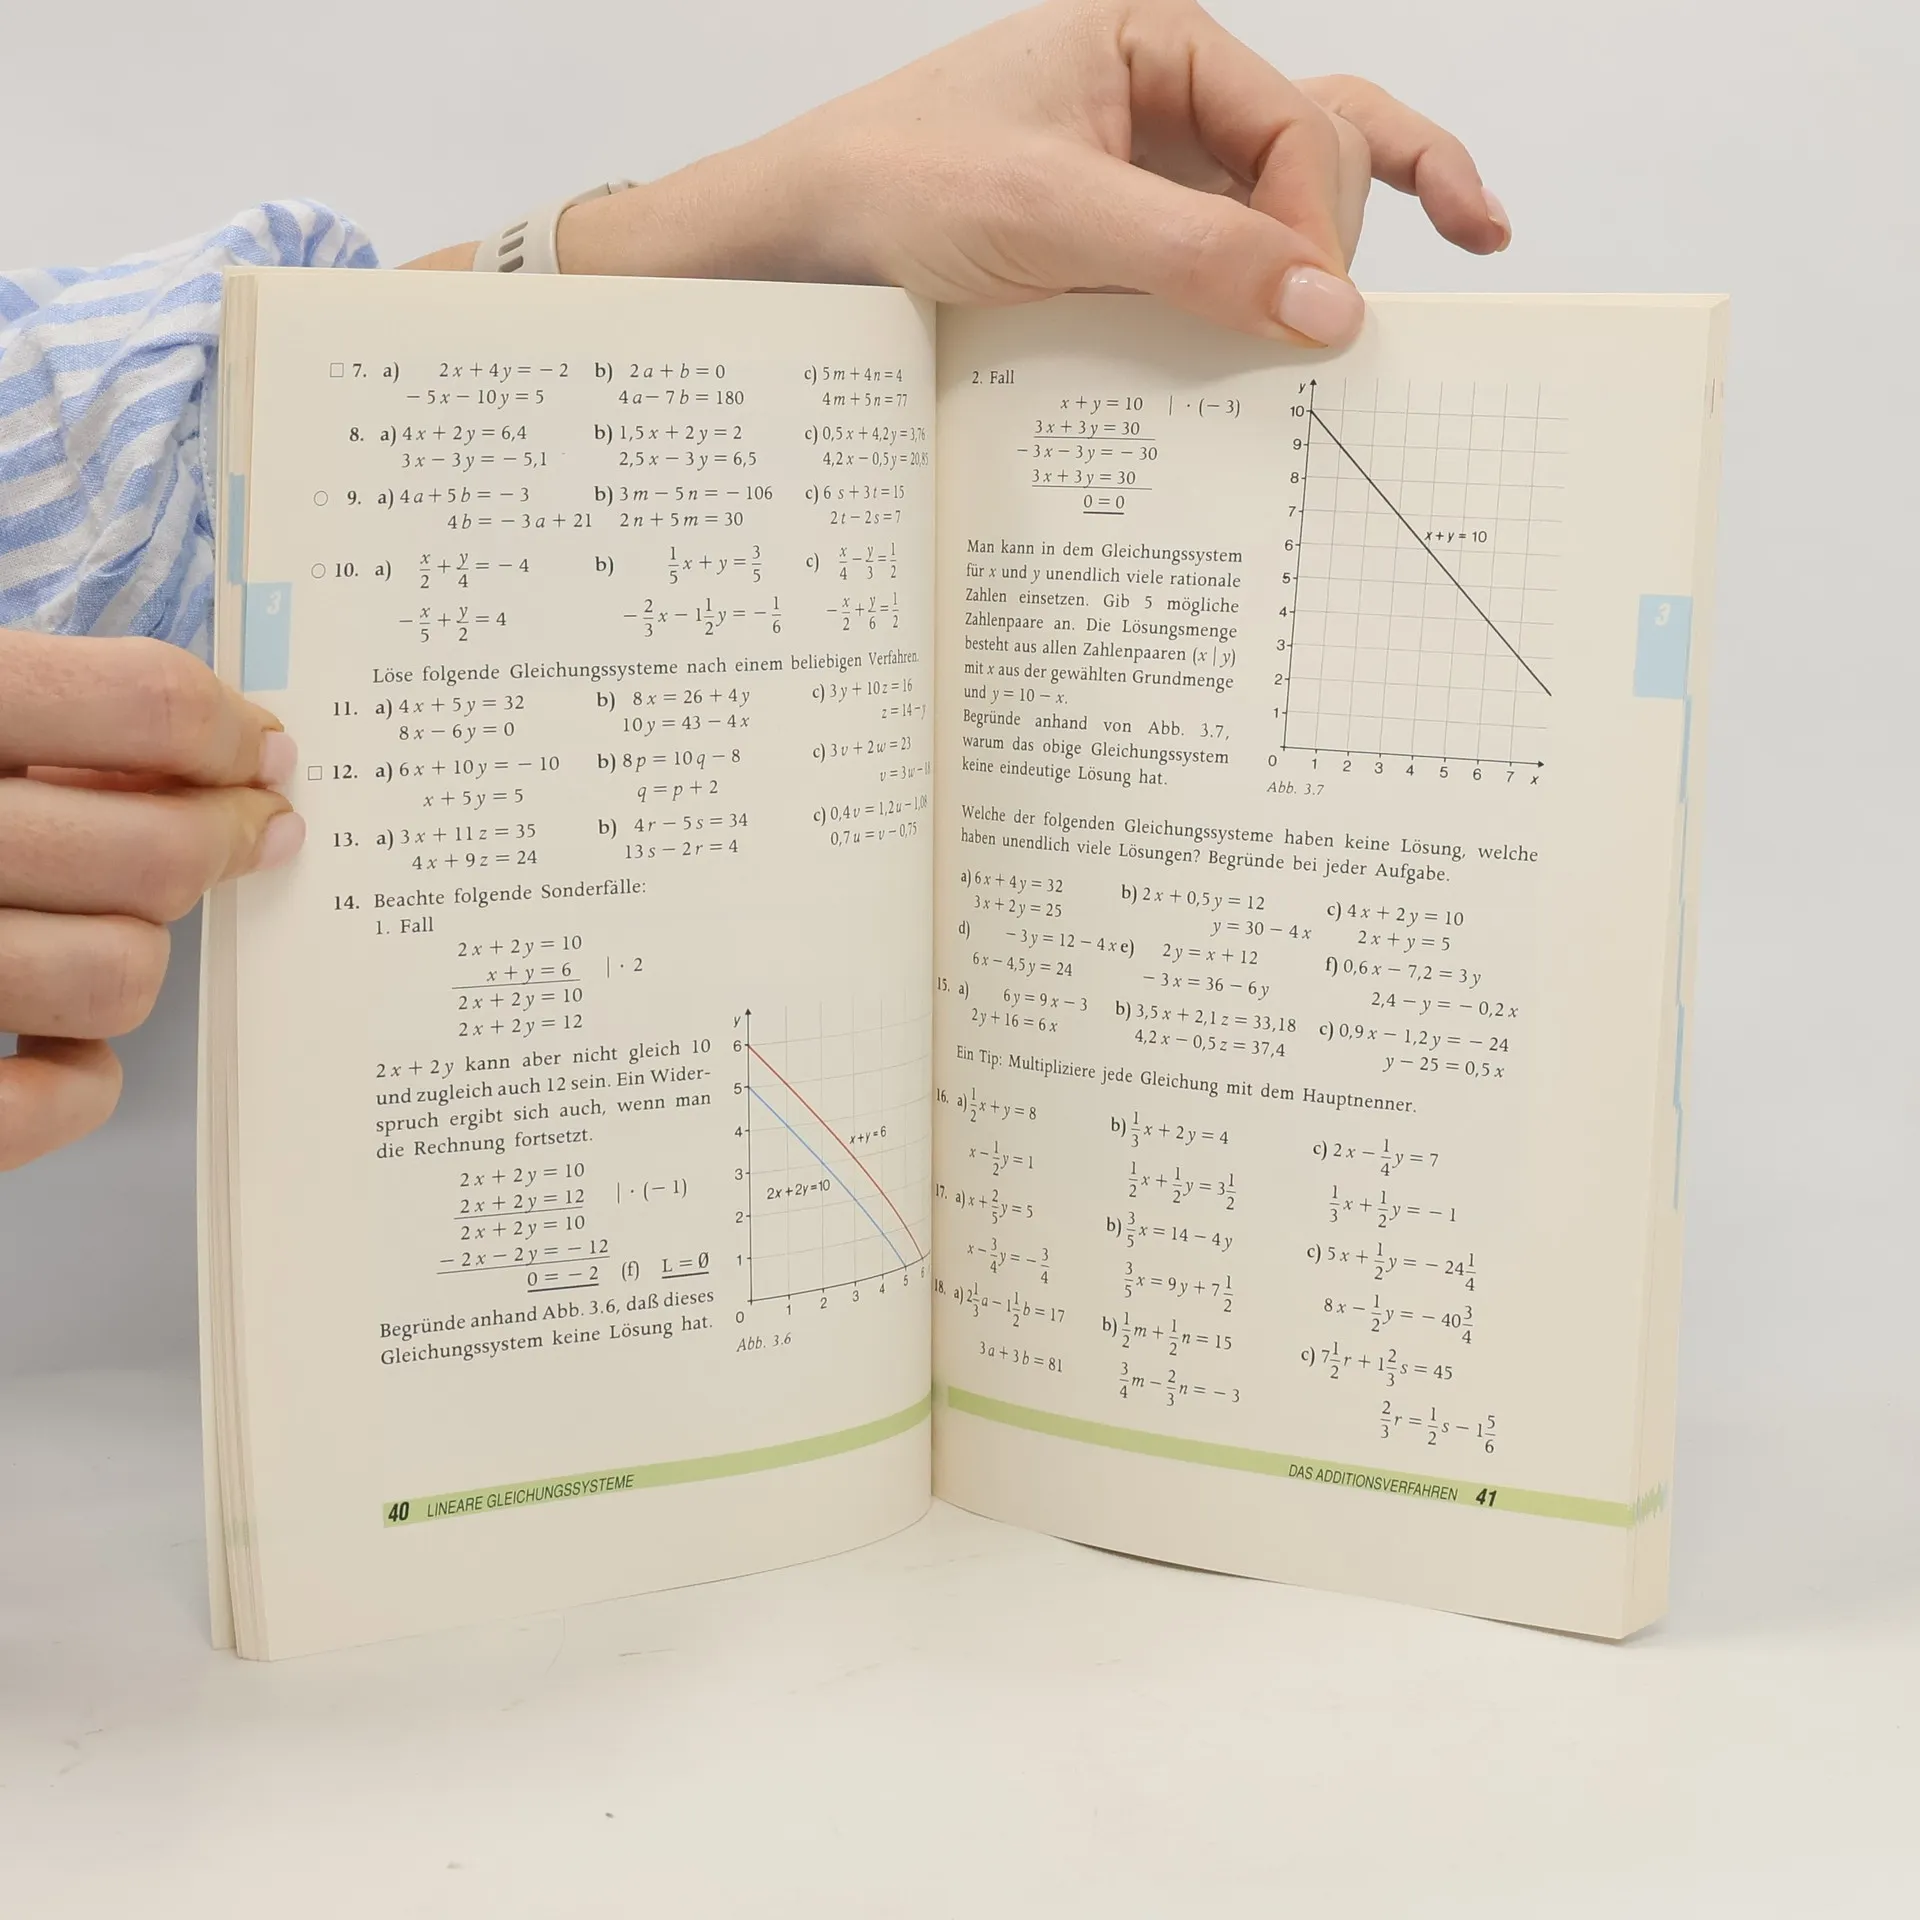 3
□ 7. a) 2x + 4y = − 2 b) 2a + b = 0 c) 5m + 4n = 4
− 5x − 10y = 5 4a − 7b = 180 4m + 5n = 77
8. a) 4x + 2y = 6,4 b) 1,5x + 2y = 2 c) 0,5x + 4,2y = 3,76
3x − 3y = − 5,1 2,5x − 3y = 6,5 4,2x − 0,5y = 20,85
○ 9. a) 4a + 5b = − 3 b) 3m − 5n = − 106 c) 6s + 3t = 15
4b = − 3a + 21 2n + 5m = 30 2t − 2s = 7
○ 10. a) x/2 + y/4 = − 4 b) 1/5 x + y = 3/5 c) x/4 − y/3 = 1/2
− x/5 + y/2 = 4 − 2/3 x − 1 1/2 y = − 1/6 − x/2 + y/6 = 1/2
Löse folgende Gleichungssysteme nach einem beliebigen Verfahren.
11. a) 4x + 5y = 32 b) 8x = 26 + 4y c) 3y + 10z = 16
8x − 6y = 0 10y = 43 − 4x z = 14 − y
□ 12. a) 6x + 10y = − 10 b) 8p = 10q − 8 c) 3v + 2w = 23
x + 5y = 5 q = p + 2 v = 3w −
13. a) 3x + 11z = 35 b) 4r − 5s = 34 c) 0,4v = 1,2u − 1,08
4x + 9z = 24 13s − 2r = 4 0,7u = v − 0,75
14. Beachte folgende Sonderfälle:
1. Fall
2x + 2y = 10
x + y = 6 | · 2
2x + 2y = 10
2x + 2y = 12
2x + 2y kann aber nicht gleich 10
und zugleich auch 12 sein. Ein Wider-
spruch ergibt sich auch, wenn man
die Rechnung fortsetzt.
2x + 2y = 10
2x + 2y = 12 | · (− 1)
2x + 2y = 10
− 2x − 2y = − 12
0 = − 2 (f) L = Ø
Begründe anhand Abb. 3.6, daß dieses
Gleichungssystem keine Lösung hat.
y
6
5
4
3
2
1
0 1 2 3 4 5 6
x+y=6
2x+2y=10
Abb. 3.6
40 LINEARE GLEICHUNGSSYSTEME
2. Fall
x + y = 10 | · (− 3)
3x + 3y = 30
− 3x − 3y = − 30
3x + 3y = 30
0 = 0
Man kann in dem Gleichungssystem
für x und y unendlich viele rationale
Zahlen einsetzen. Gib 5 mögliche
Zahlenpaare an. Die Lösungsmenge
besteht aus allen Zahlenpaaren (x | y)
mit x aus der gewählten Grundmenge
und y = 10 − x.
Begründe anhand von Abb. 3.7,
warum das obige Gleichungssystem
keine eindeutige Lösung hat.
y
10
9
8
7
6
5
4
3
2
1
0 1 2 3 4 5 6 7 x
x+y = 10
Abb. 3.7
3
Welche der folgenden Gleichungssysteme haben keine Lösung, welche
haben unendlich viele Lösungen? Begründe bei jeder Aufgabe.
a) 6x + 4y = 32 b) 2x + 0,5y = 12 c) 4x + 2y = 10
3x + 2y = 25 y = 30 − 4x 2x + y = 5
d) − 3y = 12 − 4x e) 2y = x + 12 f) 0,6x − 7,2 = 3y
6x − 4,5y = 24 − 3x = 36 − 6y 2,4 − y = − 0,2x
15. a) 6y = 9x − 3 b) 3,5x + 2,1z = 33,18 c) 0,9x − 1,2y = − 24
2y + 16 = 6x 4,2x − 0,5z = 37,4 y − 25 = 0,5x
Ein Tip: Multipliziere jede Gleichung mit dem Hauptnenner.
16. a) 1/2 x + y = 8 b) 1/3 x + 2y = 4 c) 2x − 1/4 y = 7
x − 1/2 y = 1 1/2 x + 1/2 y = 3 1/2 1/3 x + 1/2 y = − 1
17. a) x + 2/5 y = 5 b) 3/5 x = 14 − 4y c) 5x + 1/2 y = − 24 1/4
x − 3/4 y = − 3/4 3/5 x = 9y + 7 1/2 8x − 1/2 y = − 40 3/4
18. a) 2 1/3 a − 1 1/2 b = 17 b) 1/2 m + 1/2 n = 15 c) 7 1/2 r + 1 2/3 s = 45
3a + 3b = 81 3/4 m − 2/3 n = − 3 2/3 r = 1/2 s − 1 5/6
DAS ADDITIONSVERFAHREN 41